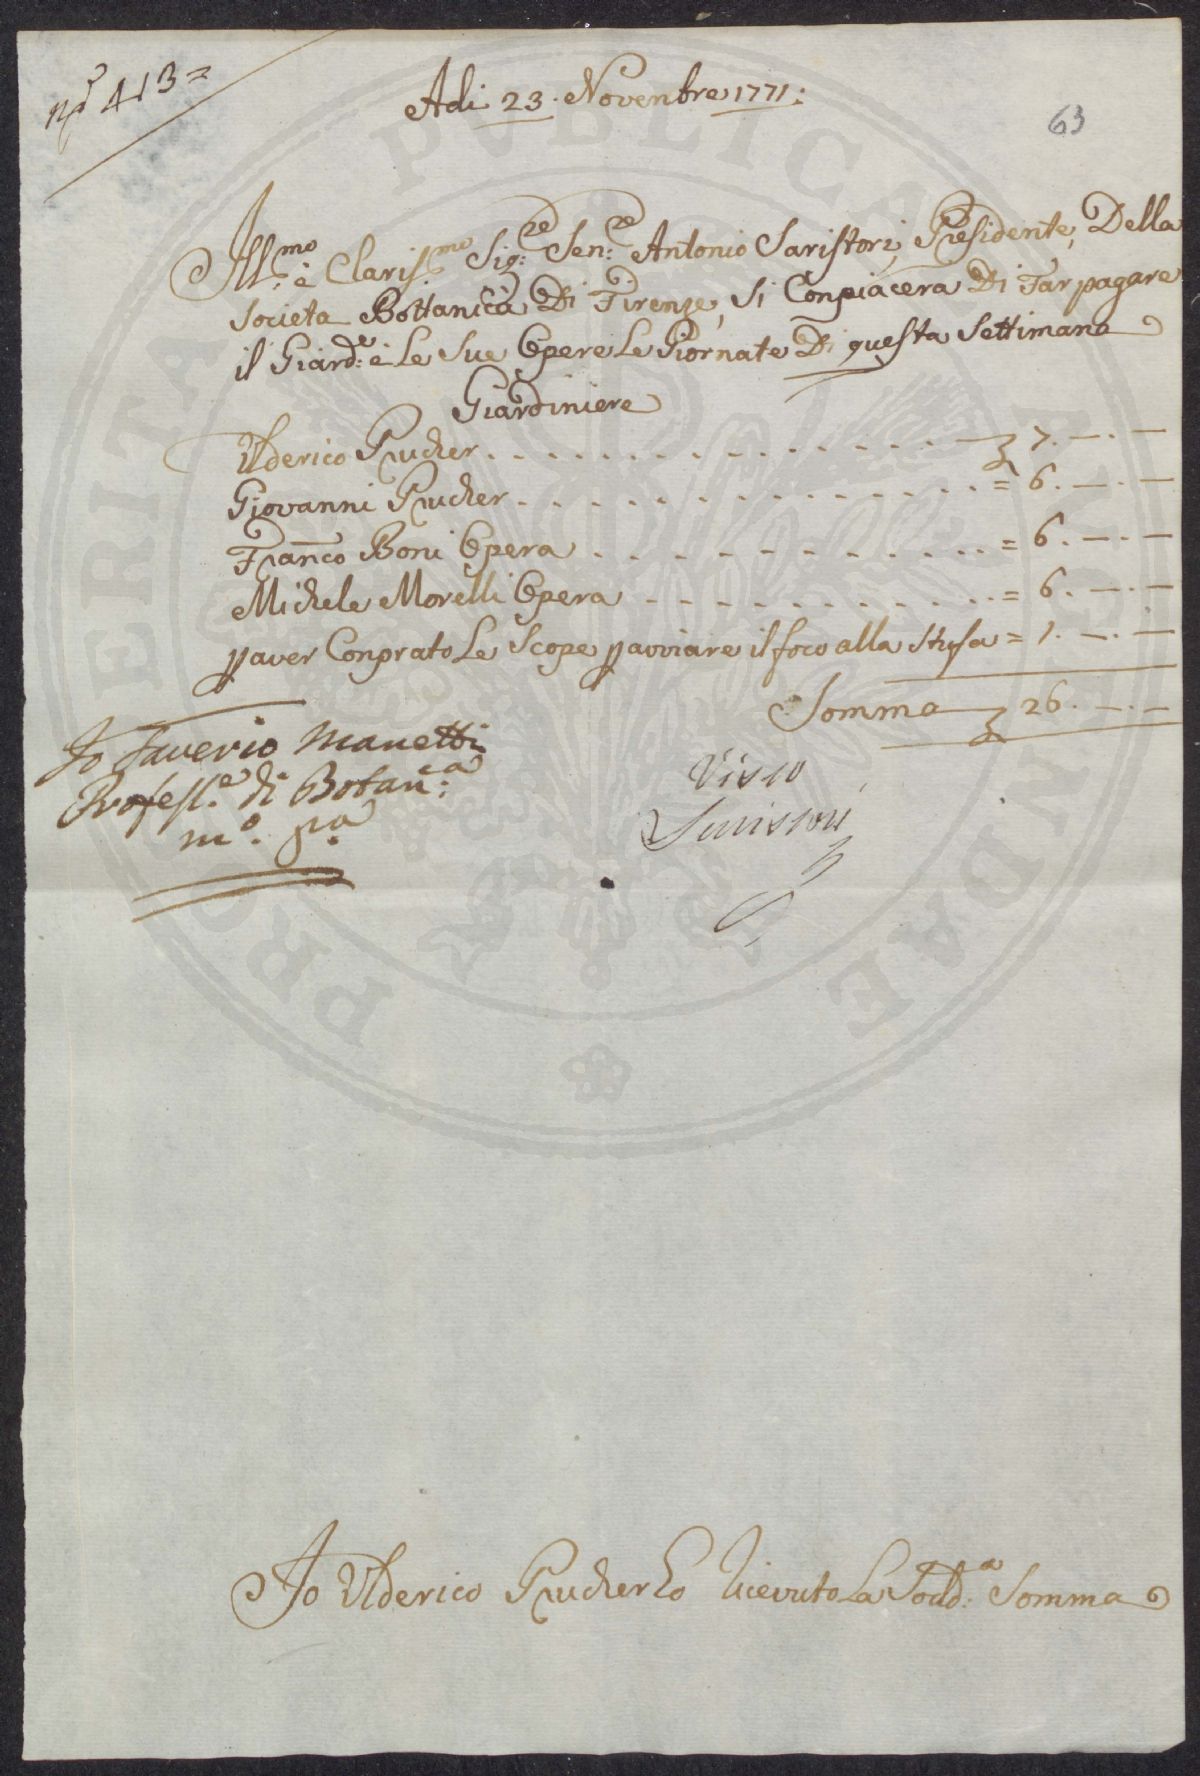 nº 413=
Adi 23. Novenbre 1771:
63
Ill:mo è Claris:mo Sig:re Sen:re Antonio Saristori, Presidente, Della
Societa Bottanica Di Firenze, Si Conpiacera Di Far pagare
il Giard:e è Le Sue Opere Le Giornate Di questa Settimana
Giardiniere
Ulderico Prucher . . . . . . . . . . . . . . 7. —. —
Giovanni Prucher . . . . . . . . . . . . . . = 6. —. —
Franco Boni Opera . . . . . . . . . . . . = 6. —. —
Michele Morelli Opera . . . . . . . . . . . = 6. —. —
p aver Conprato Le Scope p avviare il foco alla Stufa = 1. —. —
Somma 26. —. —
Io Saverio Manetti
Profess.e di Botan:ca
m.o p.a
Visto
Io Ulderico Prucher ho Ricevuto La Sodd:a Somma
PRO VERITATE PVBLICAE